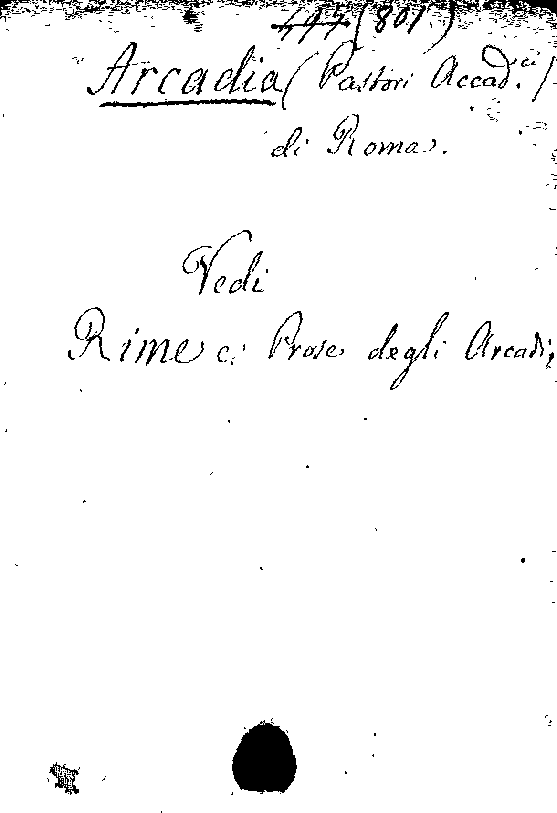 (801)
Arcadia (Pastori Accad.ci)
di Roma.
Vedi
Rime e Prose degli Arcadi.